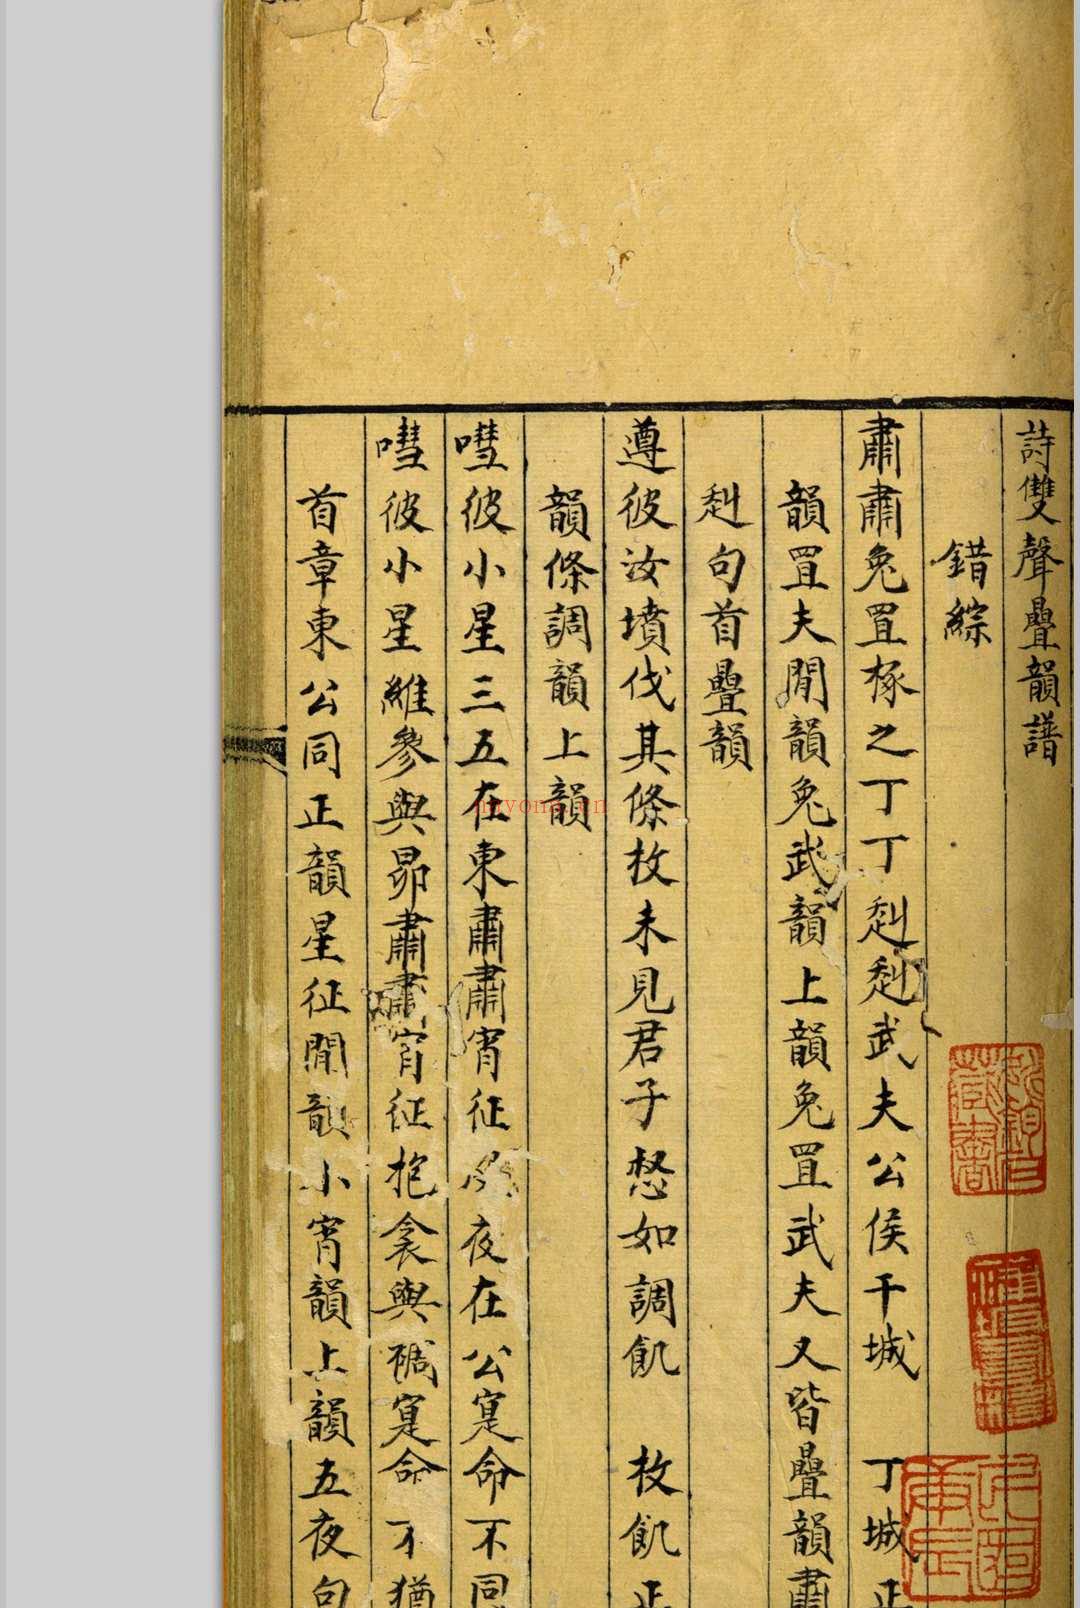 詩雙聲疊韻譜
錯綜
肅肅兔罝椓之丁丁赳赳武夫公侯干城　丁城正
韻罝夫閒韻兔武韻上韻兔罝武夫又皆疊韻肅
赳句首疊韻
遵彼汝墳伐其條枚未見君子惄如調飢　枚飢正
韻條調韻上韻
嘒彼小星三五在東肅肅宵征夙夜在公寔命不同
嘒彼小星維參與昴肅肅宵征抱衾與裯寔命不猶
首章東公同正韻星征閒韻小宵韻上韻五夜句